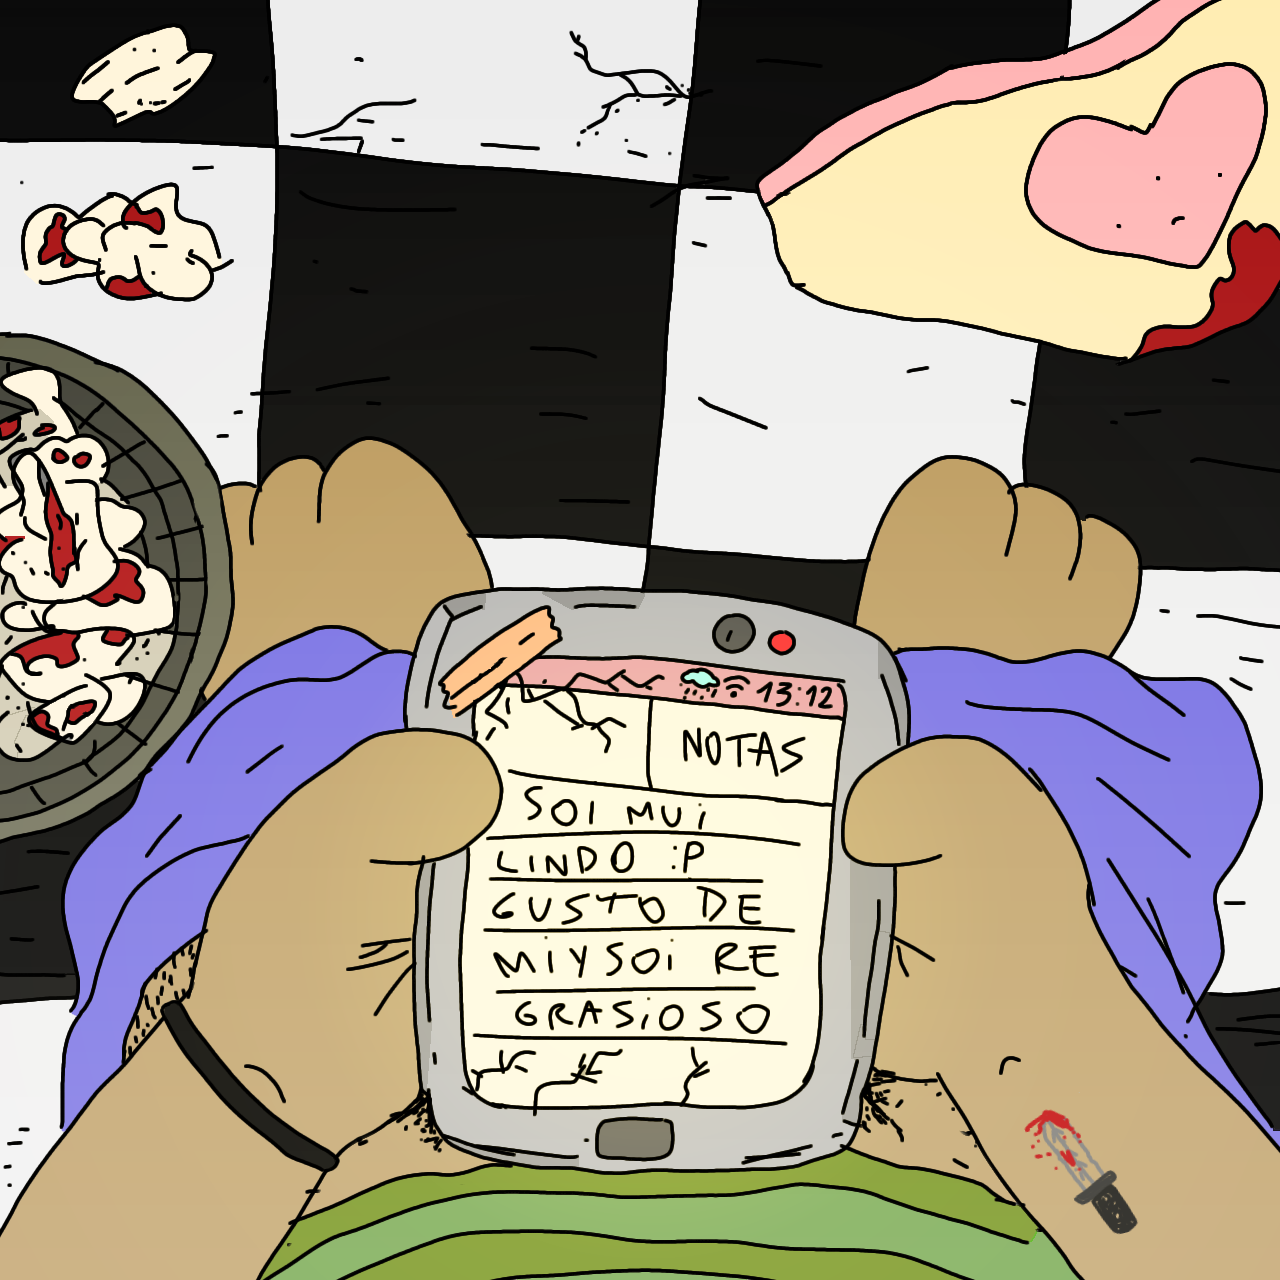 13:12
NOTAS
SOi MUi
LINDO :P
GUSTO DE
MiYSOi RE
GRASiOSO